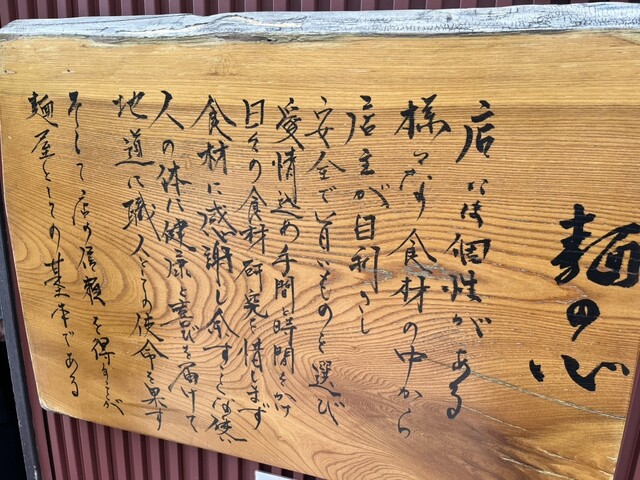 麺の心
店には個性がある
様々な食材の中から
店主が目利きし
安全で旨いものを選び
愛情込め手間と時間をかけ
日々の食材研究を惜しまず
食材に感謝し余すことなく使い
人の体に健康と喜びを届けて
地道に職人としての使命を果す
そして店が信頼を得ることが
麺屋としての基本である